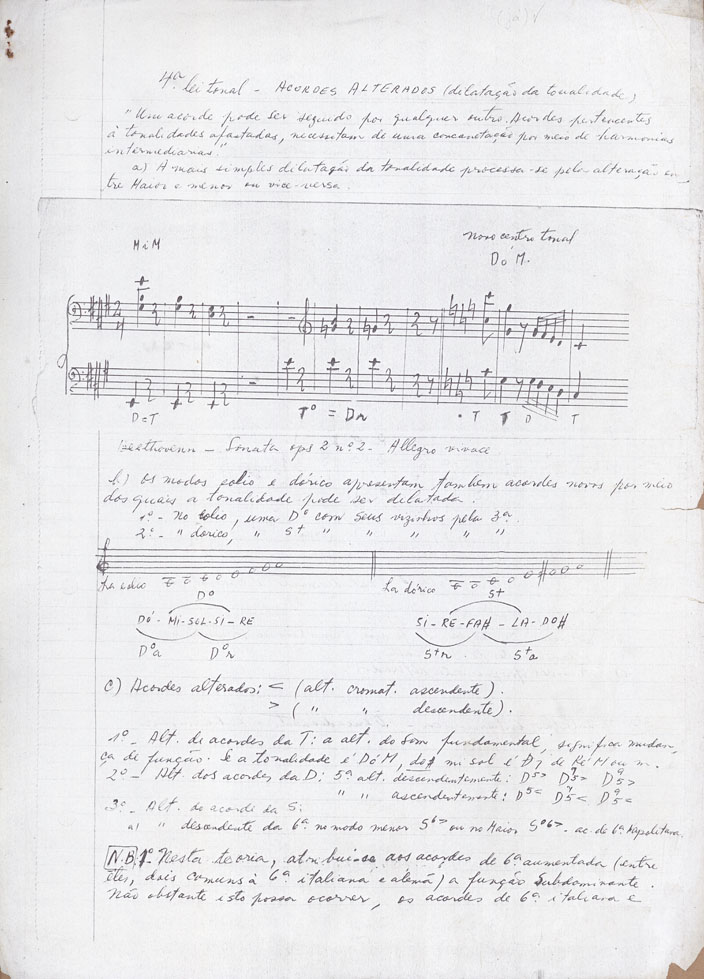 4ª lei tonal - ACORDES ALTERADOS (dilatação da tonalidade)
"Um acorde pode ser seguido por qualquer outro. Acordes pertencentes
à tonalidades afastadas, necessitam de uma concatenação por meio de harmonias
intermediarias."
a) A mais simples dilatação da tonalidade processa-se pela alteração en-
tre Maior e menor ou vice-versa.
novo centro tonal
MiM
Dó M.
D=T T° = Dr . T T D T
Beethovenn - Sonata ops 2 nº 2 - Allegro vivace
b) Os modos eolio e dórico apresentam tambem acordes novos por meio
dos quais a tonalidade pode ser dilatada.
1º - No eolio, uma D° com seus vizinhos pela 3ª.
2º - " dorico, " S+ " " " " "
La eolio
La dórico
D°
S+
DÓ - MI-SOL-SI - RE
SI - RE-FA# - LA-DO#
D°a D°r
S+r S+a
c) Acordes alterados: < (alt. cromat. ascendente).
> ( " " descendente).
1º - Alt. de acordes da T: a alt. do som fundamental, significa mudan-
ça de função: se a tonalidade é DóM, do# mi sol é D7 de Ré M ou m.
2º - Alt. dos acordes da D: 5ª alt. descendentemente: D5> D7 5> D9 5>
" " ascendentemente: D5< D7 5< D9 5<
3º - Alt. do acorde da S:
a) " descendente da 6ª no modo menor S6> ou no Maior S°6>. ac. de 6ª Napolitana.
N.B. 1º Nesta teoria, atribui-se aos acordes de 6ª aumentada (entre
êles, dois comuns à 6ª italiana e alemã) a função Subdominante.
Não obstante isto possa ocorrer, os acordes de 6ª italiana e